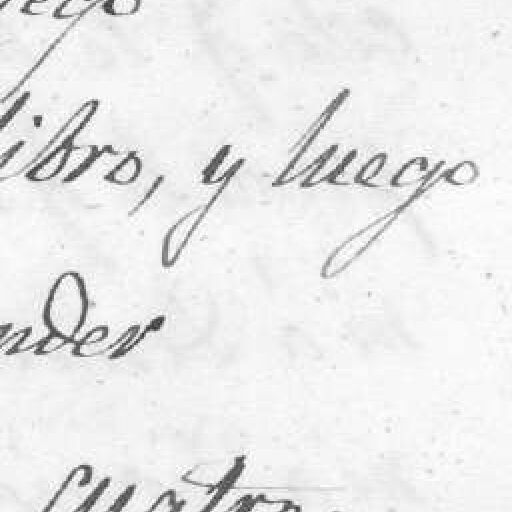 libro, y luego
nder
cuatro